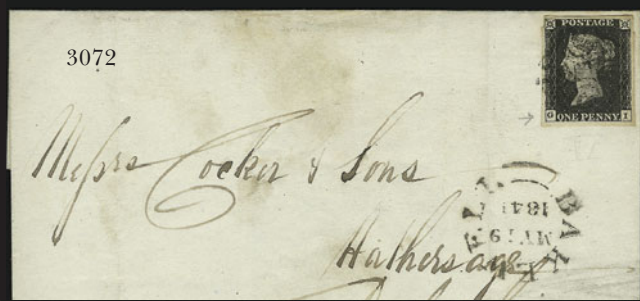 3072
POSTAGE
G ONE PENNY I
Messrs Cocker & Sons
Hathersage
BAKEWELL
MY 19
1841